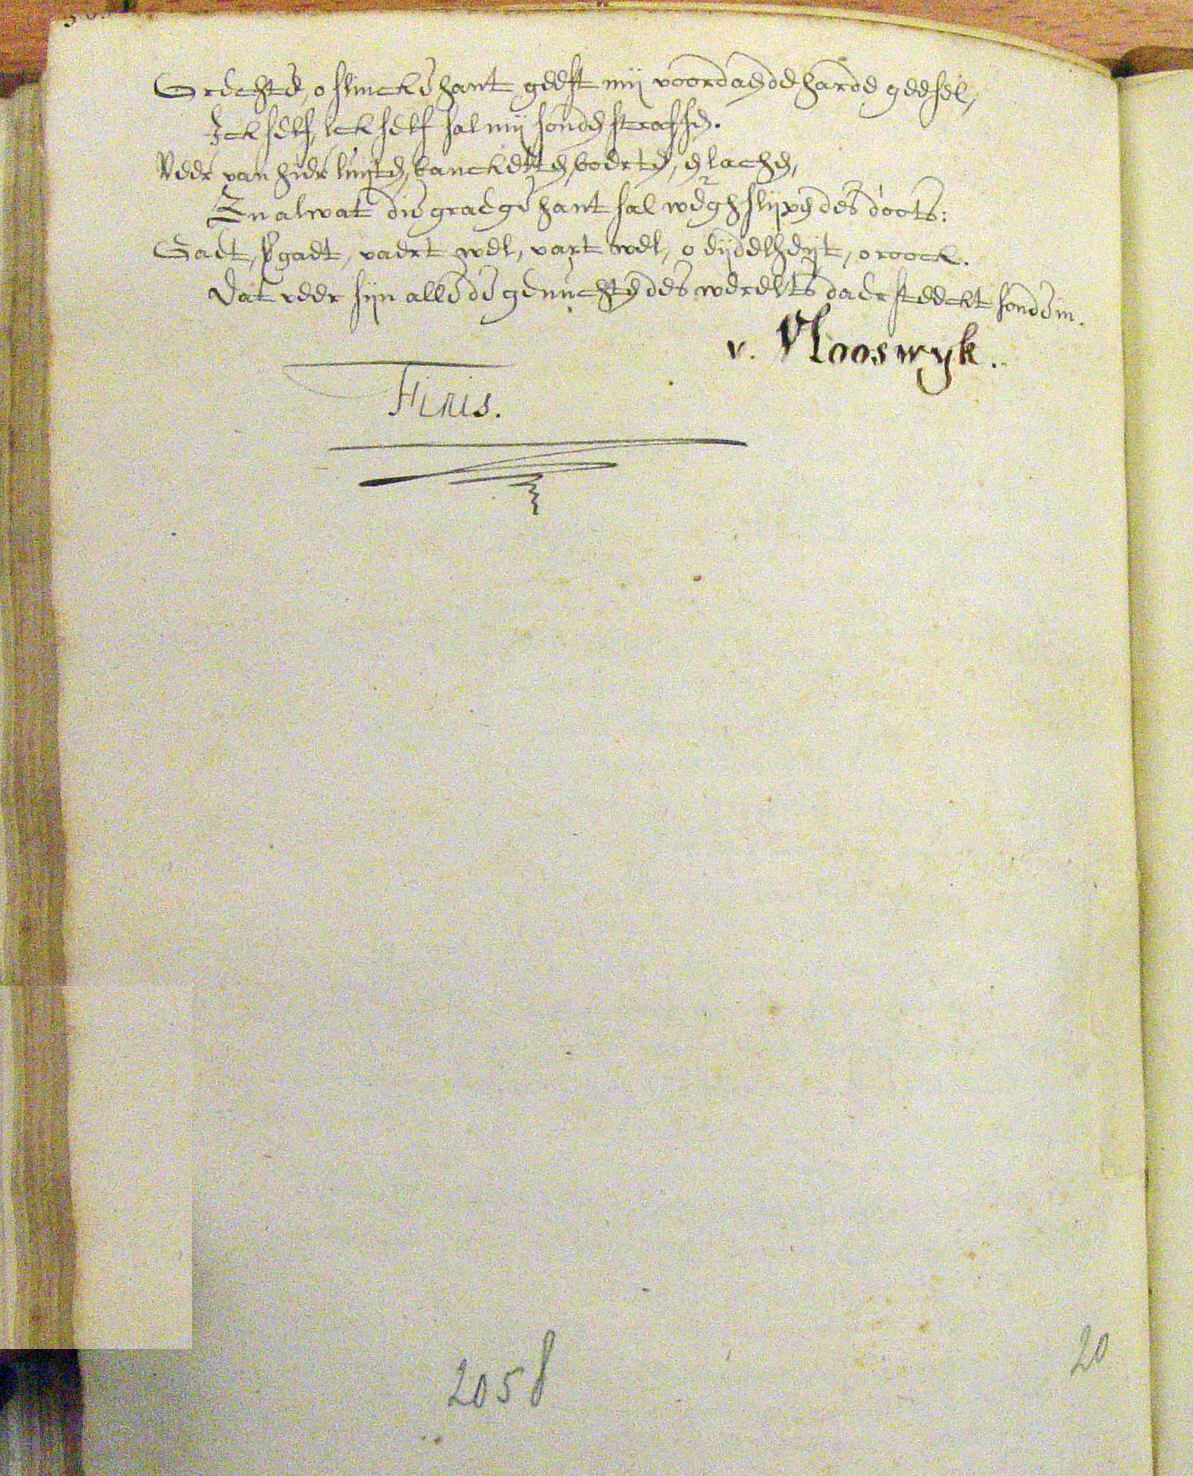 Srechte, o slincke hant geeft mij voordaen de harde geesel,
Ick self, Ick self sal mij sonden straffen.
Veer van hier lusten, bancketten, boerten, en lachen,
En al wat die graege hant sal wegh slijpen des doots:
Gaet, gaet, vaert wel, vart wel, o eijdelheijt, o roock.
Dat veer sijn alle de genuchten des werelts daer steeckt sonde in.
v. Vlooswyk.
Finis.
2058
20